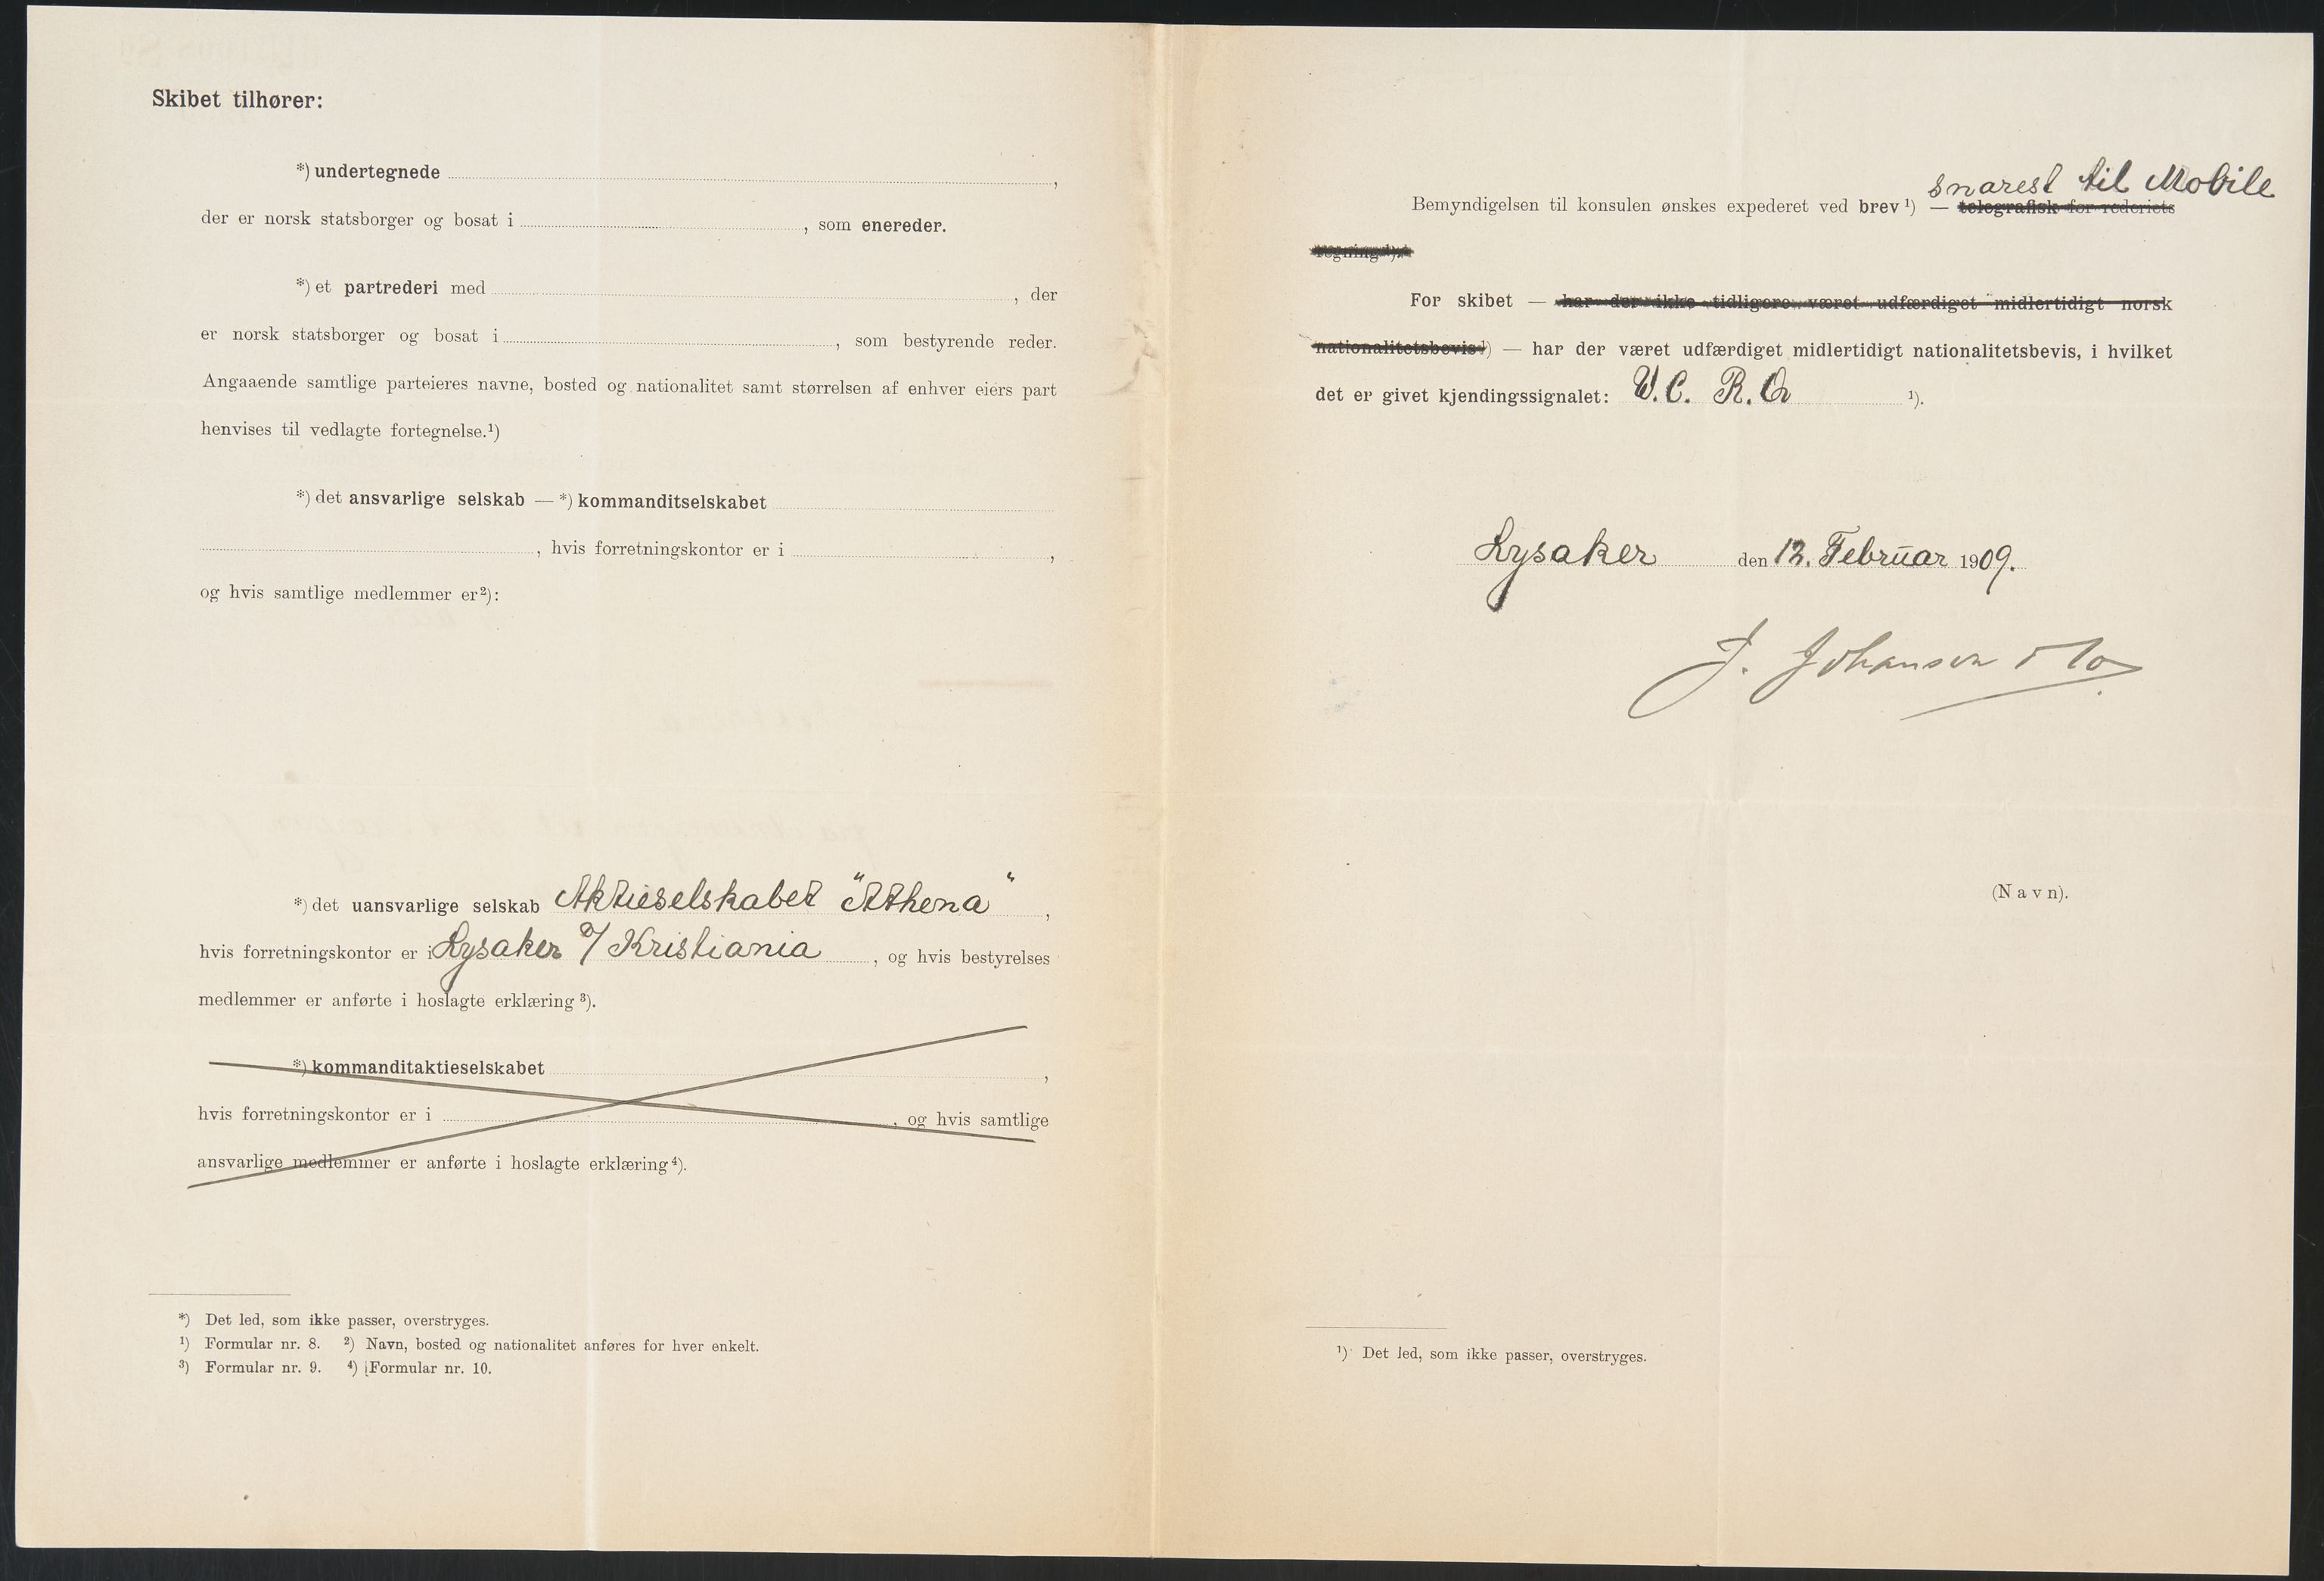 Skibet tilhører:
*) undertegnede ,
der er norsk statsborger og bosat i , som enereder.
*) et partrederi med , der
er norsk statsborger og bosat i , som bestyrende reder.
Angaaende samtlige parteieres navne, bosted og nationalitet samt størrelsen af enhver eiers part
henvises til vedlagte fortegnelse.¹)
*) det ansvarlige selskab — *) kommanditselskabet
, hvis forretningskontor er i ,
og hvis samtlige medlemmer er²):
*) det uansvarlige selskab Aktieselskabet "Athena" ,
hvis forretningskontor er i Lysaker p/ Kristiania , og hvis bestyrelses
medlemmer er anførte i hoslagte erklæring ³).
*) kommanditaktieselskabet ,
hvis forretningskontor er i , og hvis samtlige
ansvarlige medlemmer er anførte i hoslagte erklæring ⁴).
*) Det led, som ikke passer, overstryges.
¹) Formular nr. 8. ²) Navn, bosted og nationalitet anføres for hver enkelt.
³) Formular nr. 9. ⁴) Formular nr. 10.
snarest til Mobile
Bemyndigelsen til konsulen ønskes expederet ved brev ¹) — telegrafisk for rederiets
regning ¹).
For skibet — har der ikke tidligere været udfærdiget midlertidigt norsk
nationalitetsbevis ¹) — har der været udfærdiget midlertidigt nationalitetsbevis, i hvilket
det er givet kjendingssignalet: W. C. R. Q ¹).
Lysaker den 12. Februar 1909.
J. Johanson & Co
(Navn).
¹) Det led, som ikke passer, overstryges.